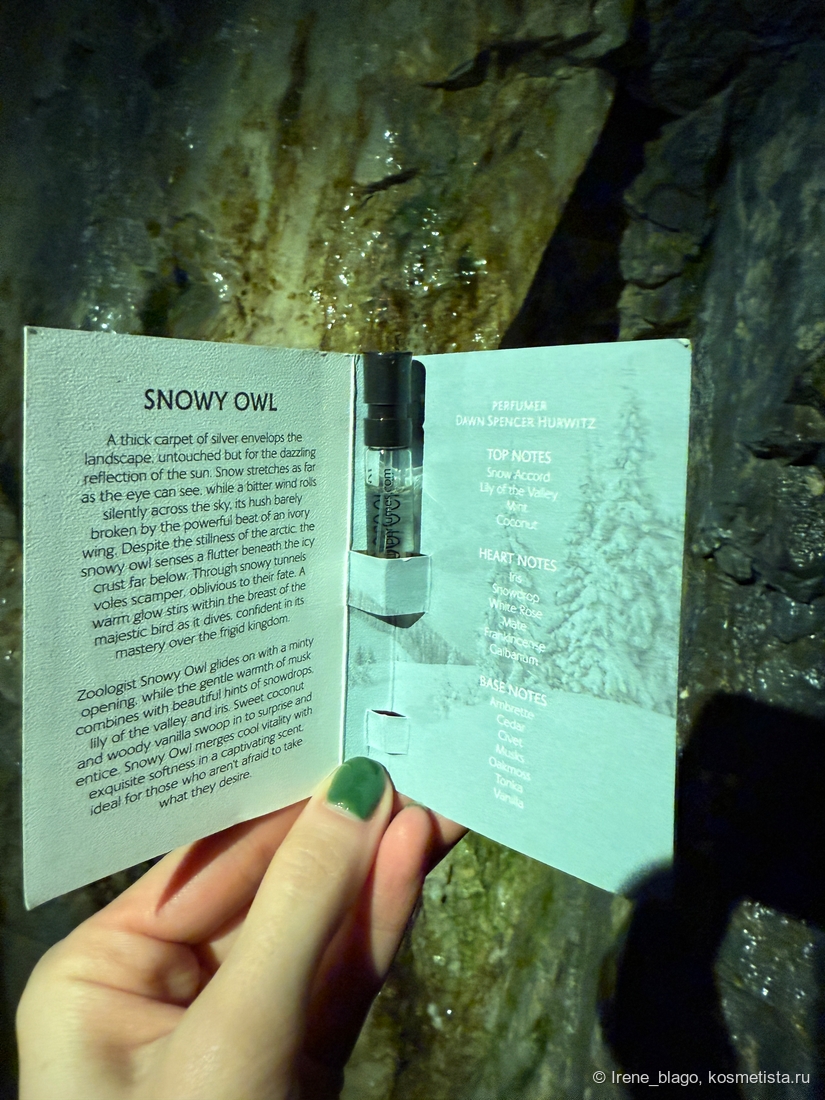 SNOWY OWL
A thick carpet of silver envelops the
landscape, untouched but for the dazzling
reflection of the sun. Snow stretches as far
as the eye can see, while a bitter wind rolls
silently across the sky, its hush barely
broken by the powerful beat of an ivory
wing. Despite the stillness of the arctic, the
snowy owl senses a flutter beneath the icy
crust far below. Through snowy tunnels
voles scamper, oblivious to their fate. A
warm glow stirs within the breast of the
majestic bird as it dives, confident in its
mastery over the frigid kingdom.
Zoologist Snowy Owl glides on with a minty
opening, while the gentle warmth of musk
combines with beautiful hints of snowdrops,
lily of the valley and iris. Sweet coconut
and woody vanilla swoop in to surprise and
entice. Snowy Owl merges cool vitality with
exquisite softness in a captivating scent,
ideal for those who aren't afraid to take
what they desire.
PERFUMER
DAWN SPENCER HURWITZ
TOP NOTES
Snow Accord
Lily of the Valley
Mint
Coconut
HEART NOTES
Iris
Snowdrop
White Rose
Mate
Frankincense
Galbanum
BASE NOTES
Ambrette
Cedar
Civet
Musks
Oakmoss
Tonka
Vanilla
© Irene_blago, kosmetista.ru